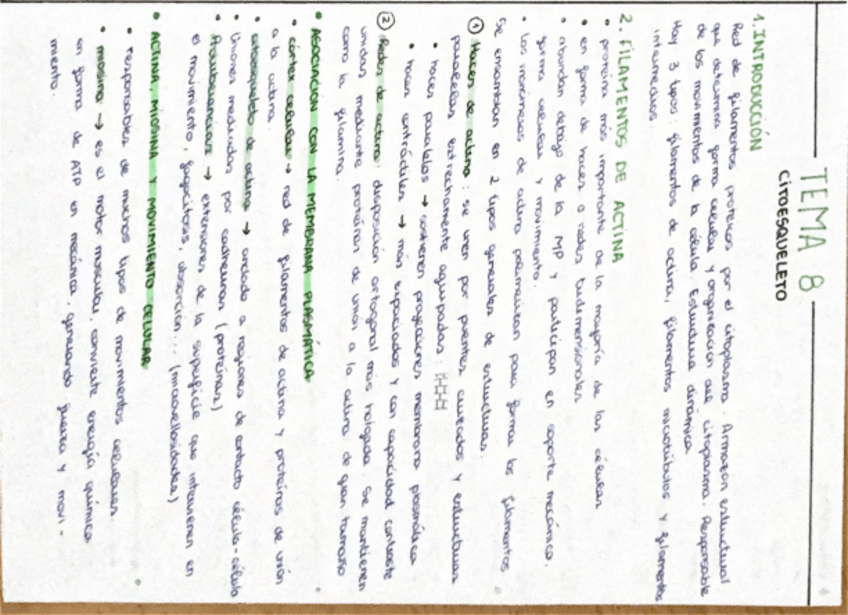 TEMA 8
CITOESQUELETO
1. INTRODUCCIÓN
Red de filamentos proteicos por el citoplasma. Armazón estructural
que determina forma celular y organización del citoplasma. Responsable
de los movimientos de la célula. Estructura dinámica.
Hay 3 tipos: filamentos de actina, filamentos microtúbulos y filamentos
intermedios.
2. FILAMENTOS DE ACTINA
• proteína más importante de la mayoría de las células
• en forma de haces o redes tridimensionales
• abundan debajo de la MP y participan en soporte mecánico,
forma celular y movimiento.
• Los monómeros de actina polimerizan para formar los filamentos
Se ensamblan en 2 tipos generales de estructuras:
① Haces de actina: se unen por puentes cruzados y estructuras
paralelas estrechamente agrupadas:
• haces paralelos → sostienen proyecciones membrana plasmática
• haces contráctiles → más espaciados y con capacidad contráctil
② Redes de actina: disposición ortogonal más holgada. Se mantienen
unidas mediante proteínas de unión a la actina de gran tamaño
como la filamina.
• ASOCIACIÓN CON LA MEMBRANA PLASMÁTICA
• córtex celular → red de filamentos de actina y proteínas de unión
a la actina.
• citoesqueleto de actina → anclado a regiones de contacto célula-célula
Uniones mediadas por cadherinas (proteínas)
• Protuberancias → extensiones de la superficie que intervienen en
el movimiento, fagocitosis, absorción... (microvellosidades)
• ACTINA, MIOSINA Y MOVIMIENTO CELULAR
• responsables de muchos tipos de movimientos celulares.
• miosina → es el motor muscular, convierte energía química
en forma de ATP en mecánica, generando fuerza y movi-
miento.